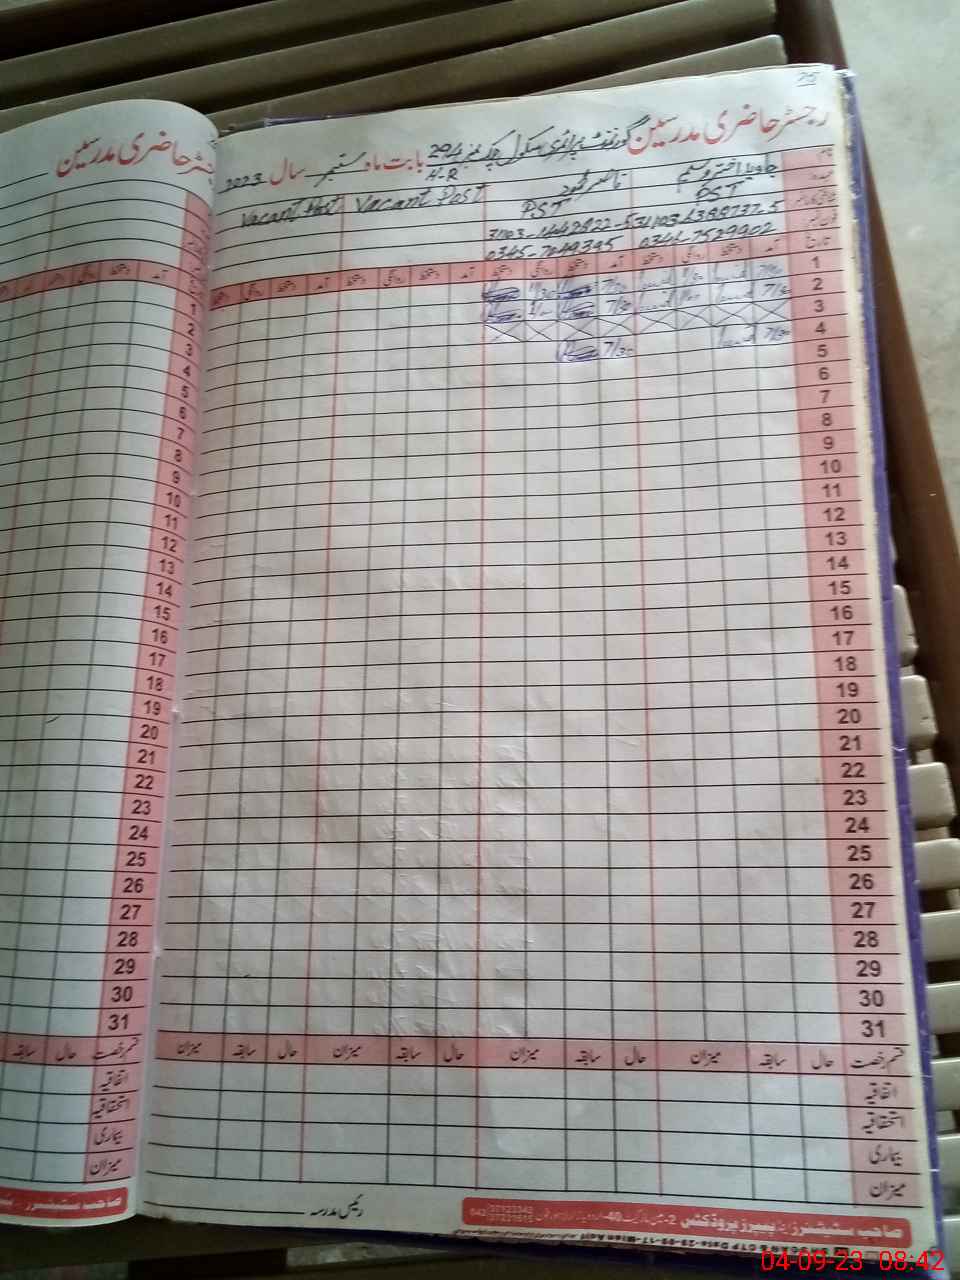 25
رجسٹر حاضری مدرسین گورنمنٹ پرائمری سکول چک نمبر 294 H-R بابت ماہ ستمبر سال 2023
نام جاوید اختر وسیم ناصر محمود Vacant Post Vacant Post
عہدہ PST PST
31103-1442822-5
0345-7049395 0341-7529902
تاریخ آمد دستخط روانگی دستخط آمد دستخط روانگی دستخط آمد دستخط روانگی دستخط آمد دستخط روانگی دستخط
1 7/30 7/30
2 7/30 7/30
3
4 7/30 7/30
5
6
7
8
9
10
11
12
13
14
15
16
17
18
19
20
21
22
23
24
25
26
27
28
29
30
31
قسم رخصت حال سابقہ میزان حال سابقہ میزان حال سابقہ میزان حال سابقہ میزان
اتفاقیہ
استحقاقیہ
بیماری
میزان
رئیس مدرسہ
رجسٹر حاضری مدرسین
1
2
3
4
5
6
7
8
9
10
11
12
13
14
15
16
17
18
19
20
21
22
23
24
25
26
27
28
29
30
31
قسم رخصت حال سابقہ
اتفاقیہ
استحقاقیہ
بیماری
میزان
04-09-23 08:42